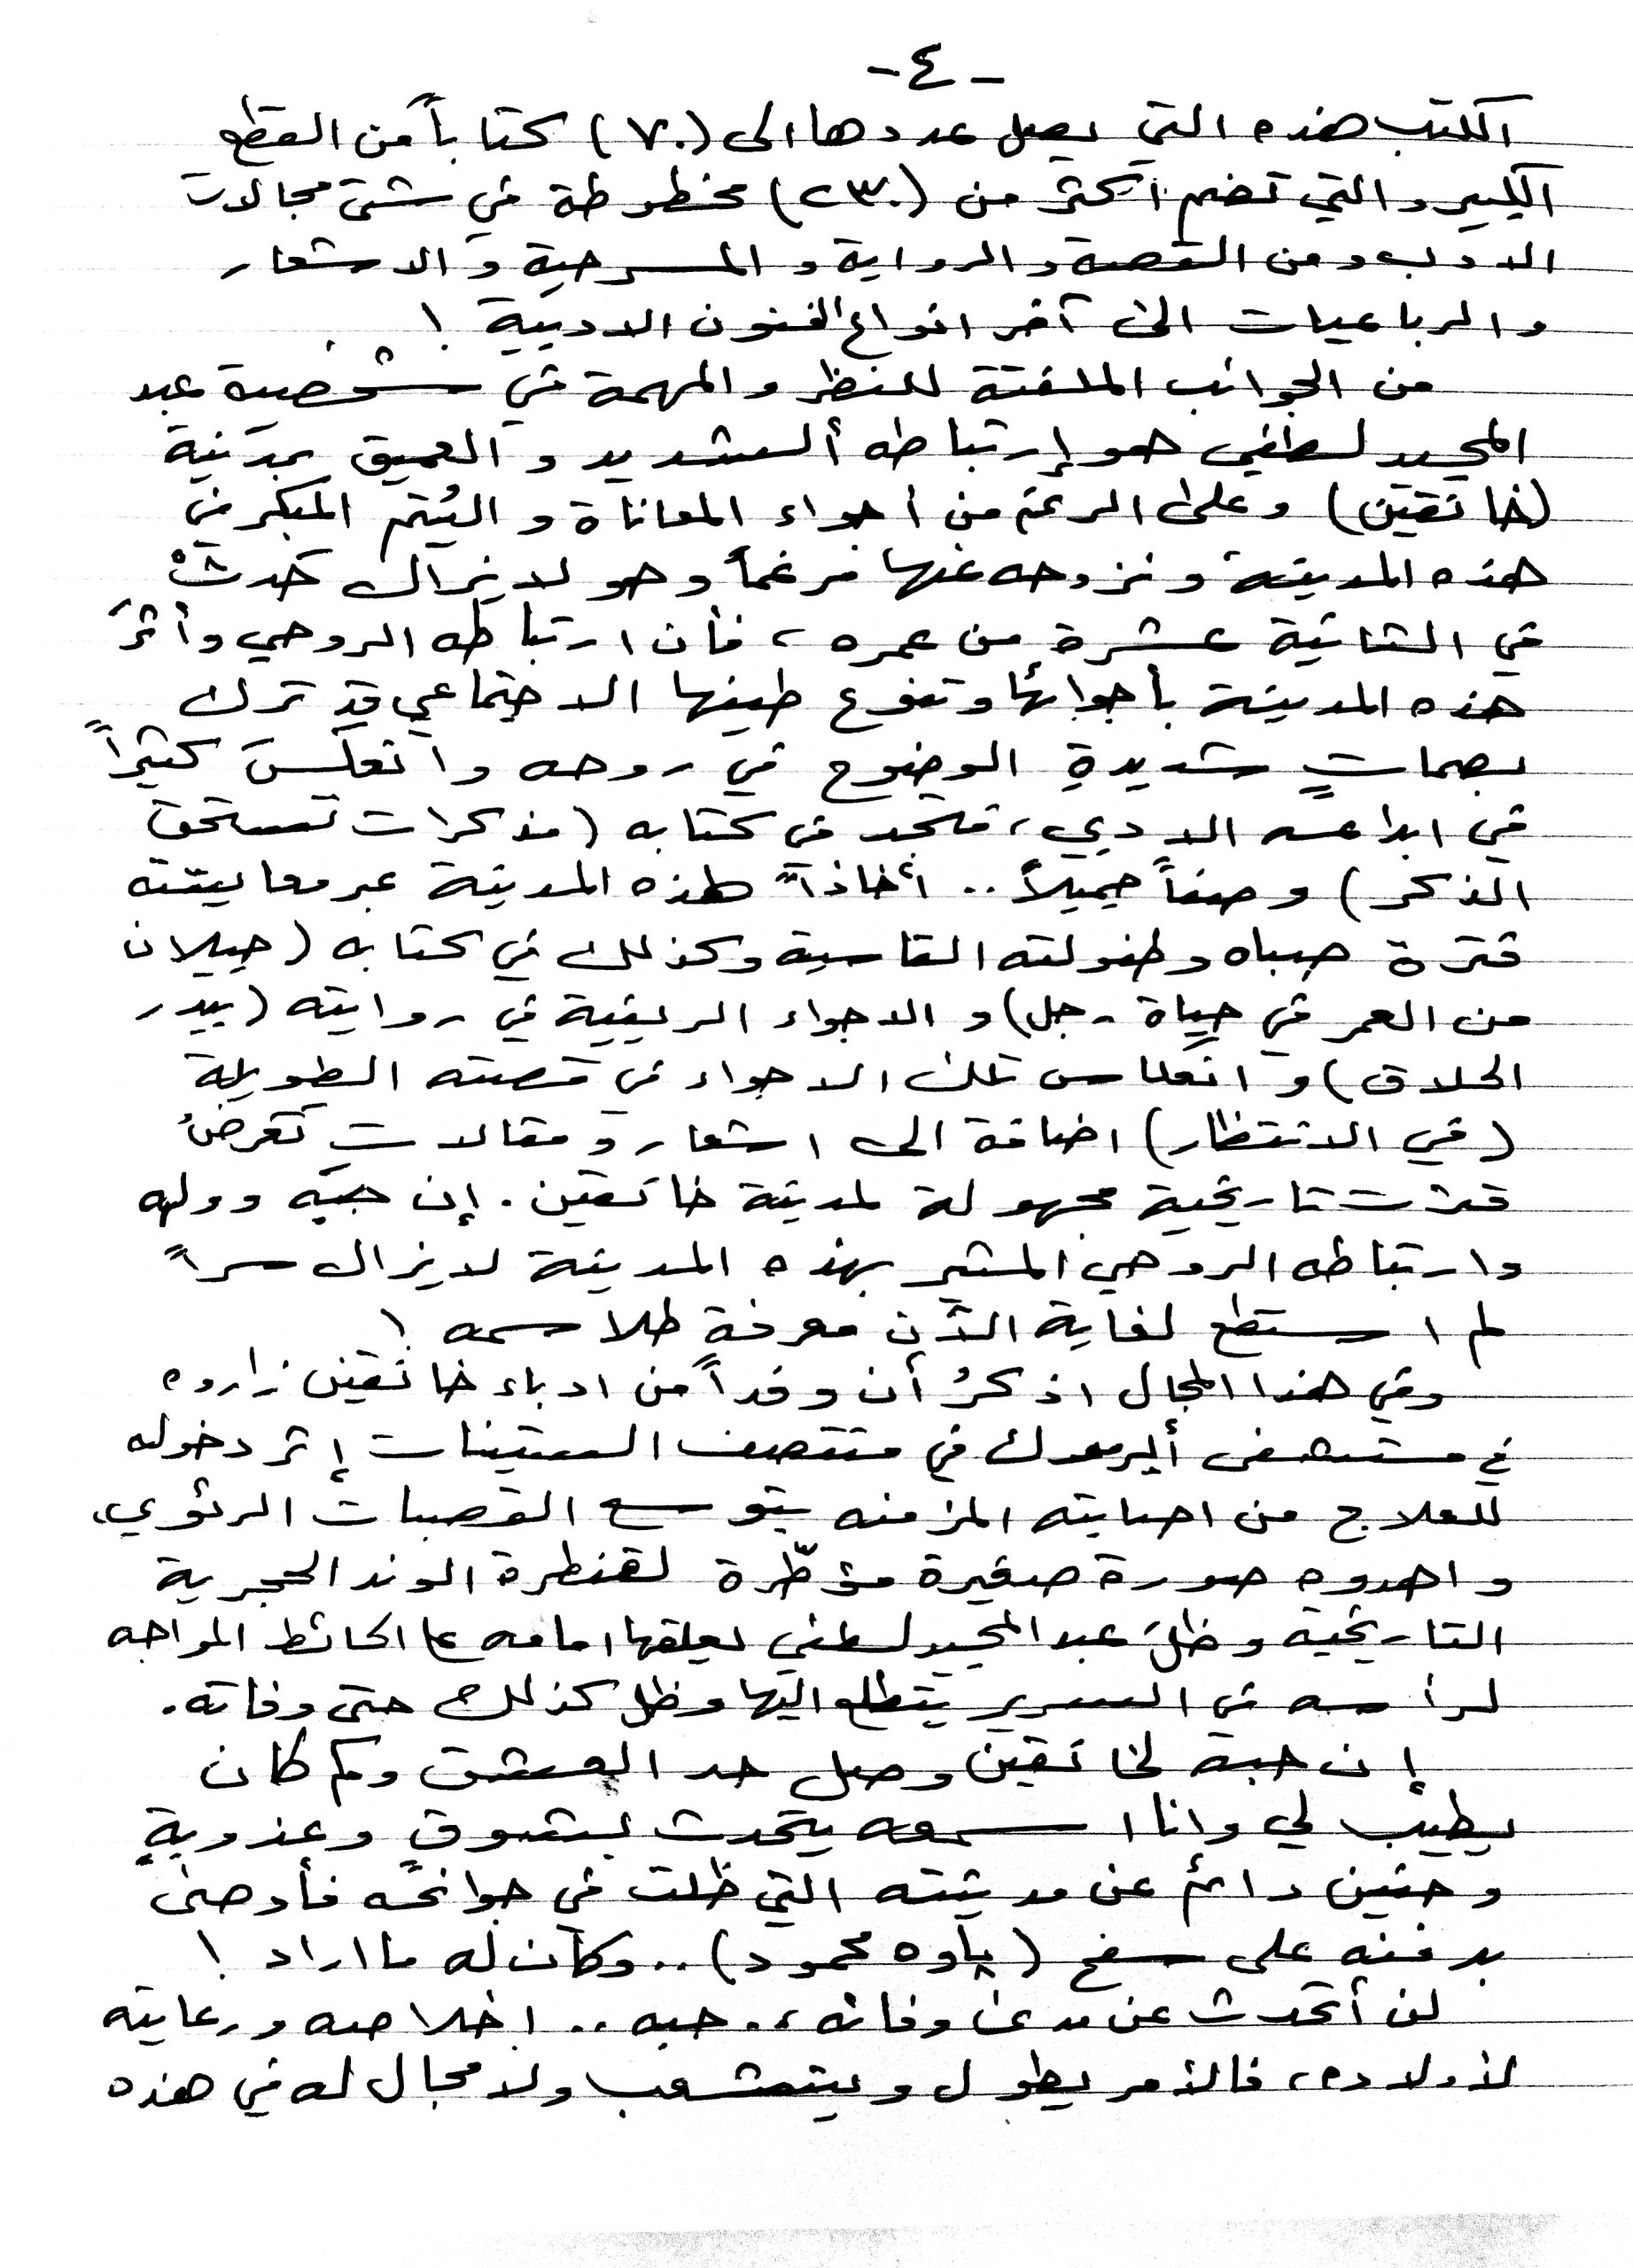 -٤-
الكتب هذه التي يصل عددها الى (٧٠) كتاباً من القطع
الكبير والتي تضم أكثر من (٢٣٠) مخطوطة في شتى مجالات
الادب ومن القصة والرواية و المسرحية و الاشعار
والرباعيات الى آخر انواع الفنون الادبية !
من الجوانب الملفتة للنظر والمهمة في شخصية عبد
المجيد لطفي هو إرتباطه ألشديد و العميق بمدينة
(خانقين) وعلى الرغم من أجواء المعاناة و اليُتم المبكر في
هذه المدينة ونزوحه عنها مرغماً وهو لا يزال حَدثْ
في الثانية عشرة من عمره ، فأن ارتباطه الروحي وأثرَ
هذه المدينة بأجوائها وتنوع طيفها الاجتماعي قد ترك
بصماتٍ شديدةِ الوضوح في روحه وانعكسَ كثيراً
في ابداعه الادبي ، فتجد في كتابه (مذكرات تستحق
الذكر) وصفاً جميلاً .. أخاذاً لهذه المدينة عبر معايشته
فترة صباه وطفولته القاسية وكذلك في كتابه (جيلان
من العمر في حياة رجل) و الاجواء الريفية في روايته (بيدر
الحلاق) و انعكاس تلك الاجواء في قصته الطويلة
(في الانتظار) اضافة الى اشعار و مقالات تَعْرضُ
فترت تاريخية مجهولة لمدينة خانقين . إن حبّه وولهه
وارتباطه الروحي المثير بهذه المدينة لايزال سراً
لم استطع لغاية الآن معرفة طلاسمه !
وفي هذا المجال اذكرُ أن وفداً من ادباء خانقين زاروه
في مستشفى أليرموك في منتصف الستينات إثر دخوله
للعلاج من اصابته المزمنه بتوسع القصبات الرئوي،
واهدوه صورة صغيرة مؤطّرة لقنطرة الوند الحجرية
التاريخية وظلَ عبد المجيد لطفي يعلقها امامه على الحائط المواجه
لرأسه في السرير يتطلع اليها وظل كذلك حتى وفاته .
إن حبه لخانقين وصل حد العشق وكم كان
يطيب لي وانا اسمعه يتحدث بشوقٍ وعذوبةٍ
وحنين دائم عن مدينته التي ظلت في جوانحه فأوصى
بدفنه على سفح (پاوه محمود) .. وكان له ما اراد !
لن أتحدث عن مدى وفائه .. حبه .. اخلاصه ورعايته
لأولاده ، فالأمر يطول و يتشعب ولا مجال له في هذه